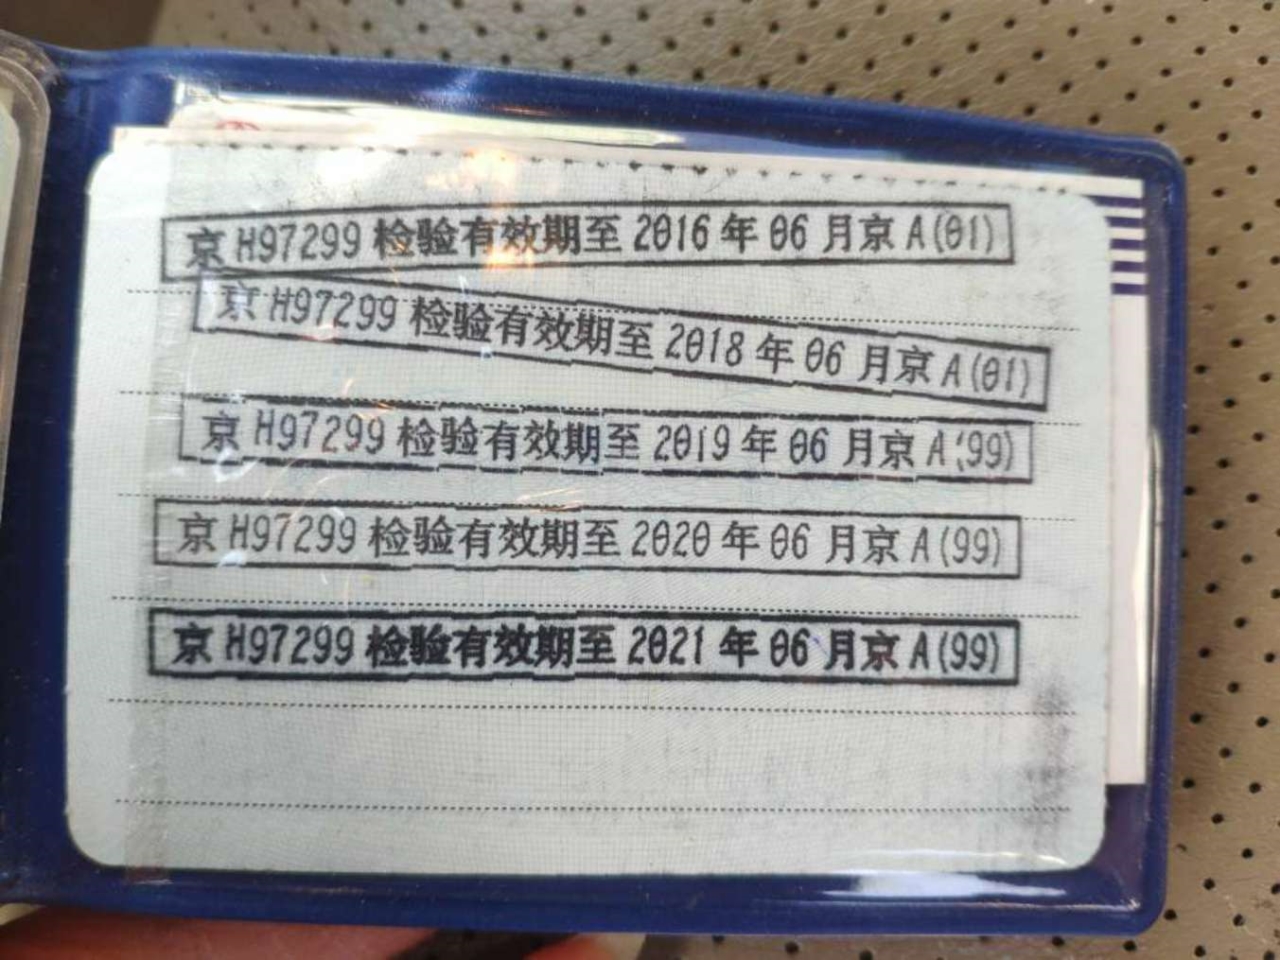 京H97299检验有效期至2016年06月京A(01)
京H97299检验有效期至2018年06月京A(01)
京H97299检验有效期至2019年06月京A(99)
京H97299检验有效期至2020年06月京A(99)
京H97299检验有效期至2021年06月京A(99)